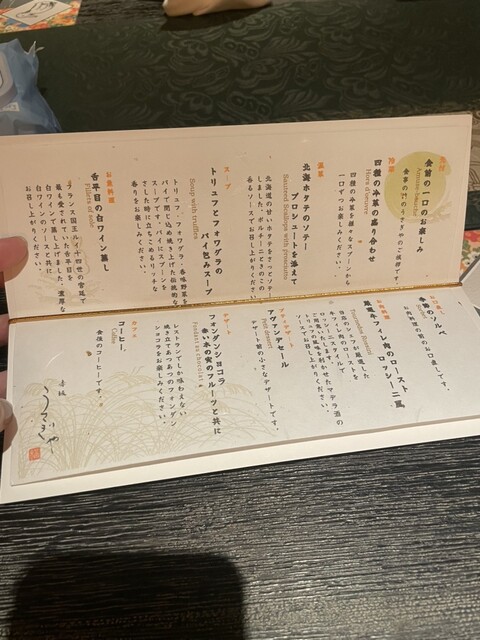 先付
食前の一口のお楽しみ
Amuse-bouche
冷菜
四種の冷菜の盛り合わせ
Hors d'œuvre
四種の冷菜を種々スプーンから
一口ずつお楽しみください。
温菜
北海ホタテのソテー
プッシュートを添えて
Sauteed Scallops with
北海道の甘いホタテをさっとソテー
しました。ポルチーニ
香るソースでお召し上がりください。
スープ
トリュフとフォワグラの
パイ包みスープ
Soup with truffles
トリュフ、フォワグラ、香味野菜を
パイで閉じ込め焼き上げた伝統的な
スープです。パイにスプーンを
さした時に立ちこめるリッチな
香りをお楽しみください。
お魚料理
舌平目の白ワイン蒸し
Fillets of sole
フランス国王ルイ十四世の宮廷で
最も愛されていた舌平目を
白ワインで蒸し上げ、濃厚な
白ワインのソースと共に
お召し上がりください。
お口直し
季節のソルベ
お肉料理のお口直しです。
お肉料理
厳選牛フィレ肉のロースト
ロッシーニ風
当店のシェフが厳選した
牛フィレ肉のローストを
アヴァンデセール
デザート前の小さなデザートです。
デザート
フォンダンショコラ
赤い木の実のフルーツと共に
Fondant au chocolat
レストランでしか味わえない
焼き立てあつあつのフォンダン
ショコラをお楽しみください。
カフェ
コーヒー
Coffee
食後のコーヒーです。
赤坂